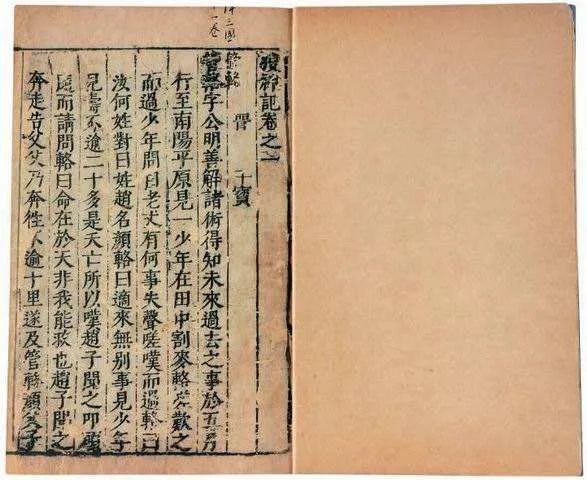 三國
一卷
搜神記卷之一
晉 干寶
管輅字公明善解諸術得知未來過去之事於五月
行至南陽平原見一少年在田中割麥輅歎之
而過少年問曰老丈有何事失聲嗟嘆而過輅曰
汝何姓對曰姓趙名顏輅曰適來無別事見少年
壽不逾二十多是夭亡所以嘆趙子聞之叩
而請問輅曰命在於天非我能救也趙子聞之
奔走告父父乃奔徃不逾十里遂及管輅顏父子